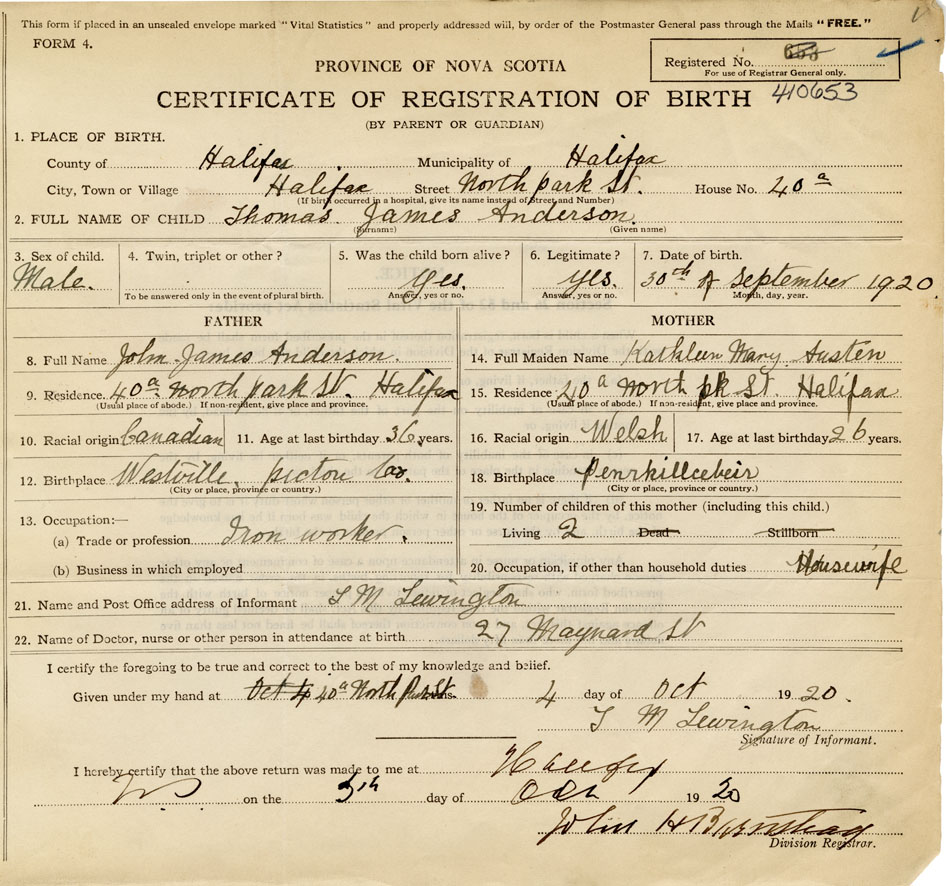 This form if placed in an unsealed envelope marked "Vital Statistics" and properly addressed will, by order of the Postmaster General pass through the Mails "FREE."
FORM 4.
Registered No.
For use of Registrar General only.
410653
PROVINCE OF NOVA SCOTIA
CERTIFICATE OF REGISTRATION OF BIRTH
(BY PARENT OR GUARDIAN)
1. PLACE OF BIRTH.
County of Halifax Municipality of Halifax
City, Town or Village Halifax Street North park St. House No. 40 a
(If birth occurred in a hospital, give its name instead of Street and Number)
2. FULL NAME OF CHILD Thomas James Anderson.
(Surname) (Given name)
3. Sex of child. 4. Twin, triplet or other? 5. Was the child born alive? 6. Legitimate? 7. Date of birth.
Male. Yes. yes. 30th of September 1920.
To be answered only in the event of plural birth. Answer, yes or no. Answer, yes or no. Month, day, year.
FATHER MOTHER
8. Full Name John James Anderson. 14. Full Maiden Name Kathleen Mary Austen
9. Residence. 40 a North park St. Halifax 15. Residence 40 a North pk St. Halifax
(Usual place of abode.) If non-resident, give place and province. (Usual place of abode.) If non-resident, give place and province.
10. Racial origin Canadian 11. Age at last birthday 36 years. 16. Racial origin Welsh 17. Age at last birthday 26 years.
12. Birthplace Westville, picton Co. 18. Birthplace
(City or place, province or country.) (City or place, province or country.)
19. Number of children of this mother (including this child.)
13. Occupation:—
(a) Trade or profession Iron worker. Living 2 Dead Stillborn
(b) Business in which employed 20. Occupation, if other than household duties Housewife
21. Name and Post Office address of Informant M Lewington
22. Name of Doctor, nurse or other person in attendance at birth 27 Maynard St
I certify the foregoing to be true and correct to the best of my knowledge and belief.
Given under my hand at Oct 4 40 a North Park St. 4 day of Oct 1920.
M Lewington
Signature of Informant.
I hereby certify that the above return was made to me at Halifax
on the 5th day of Oct 1920
John H
Division Registrar.